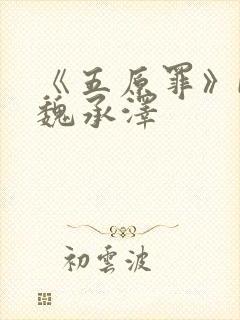 《五原罪》
魏承澤
初雲波